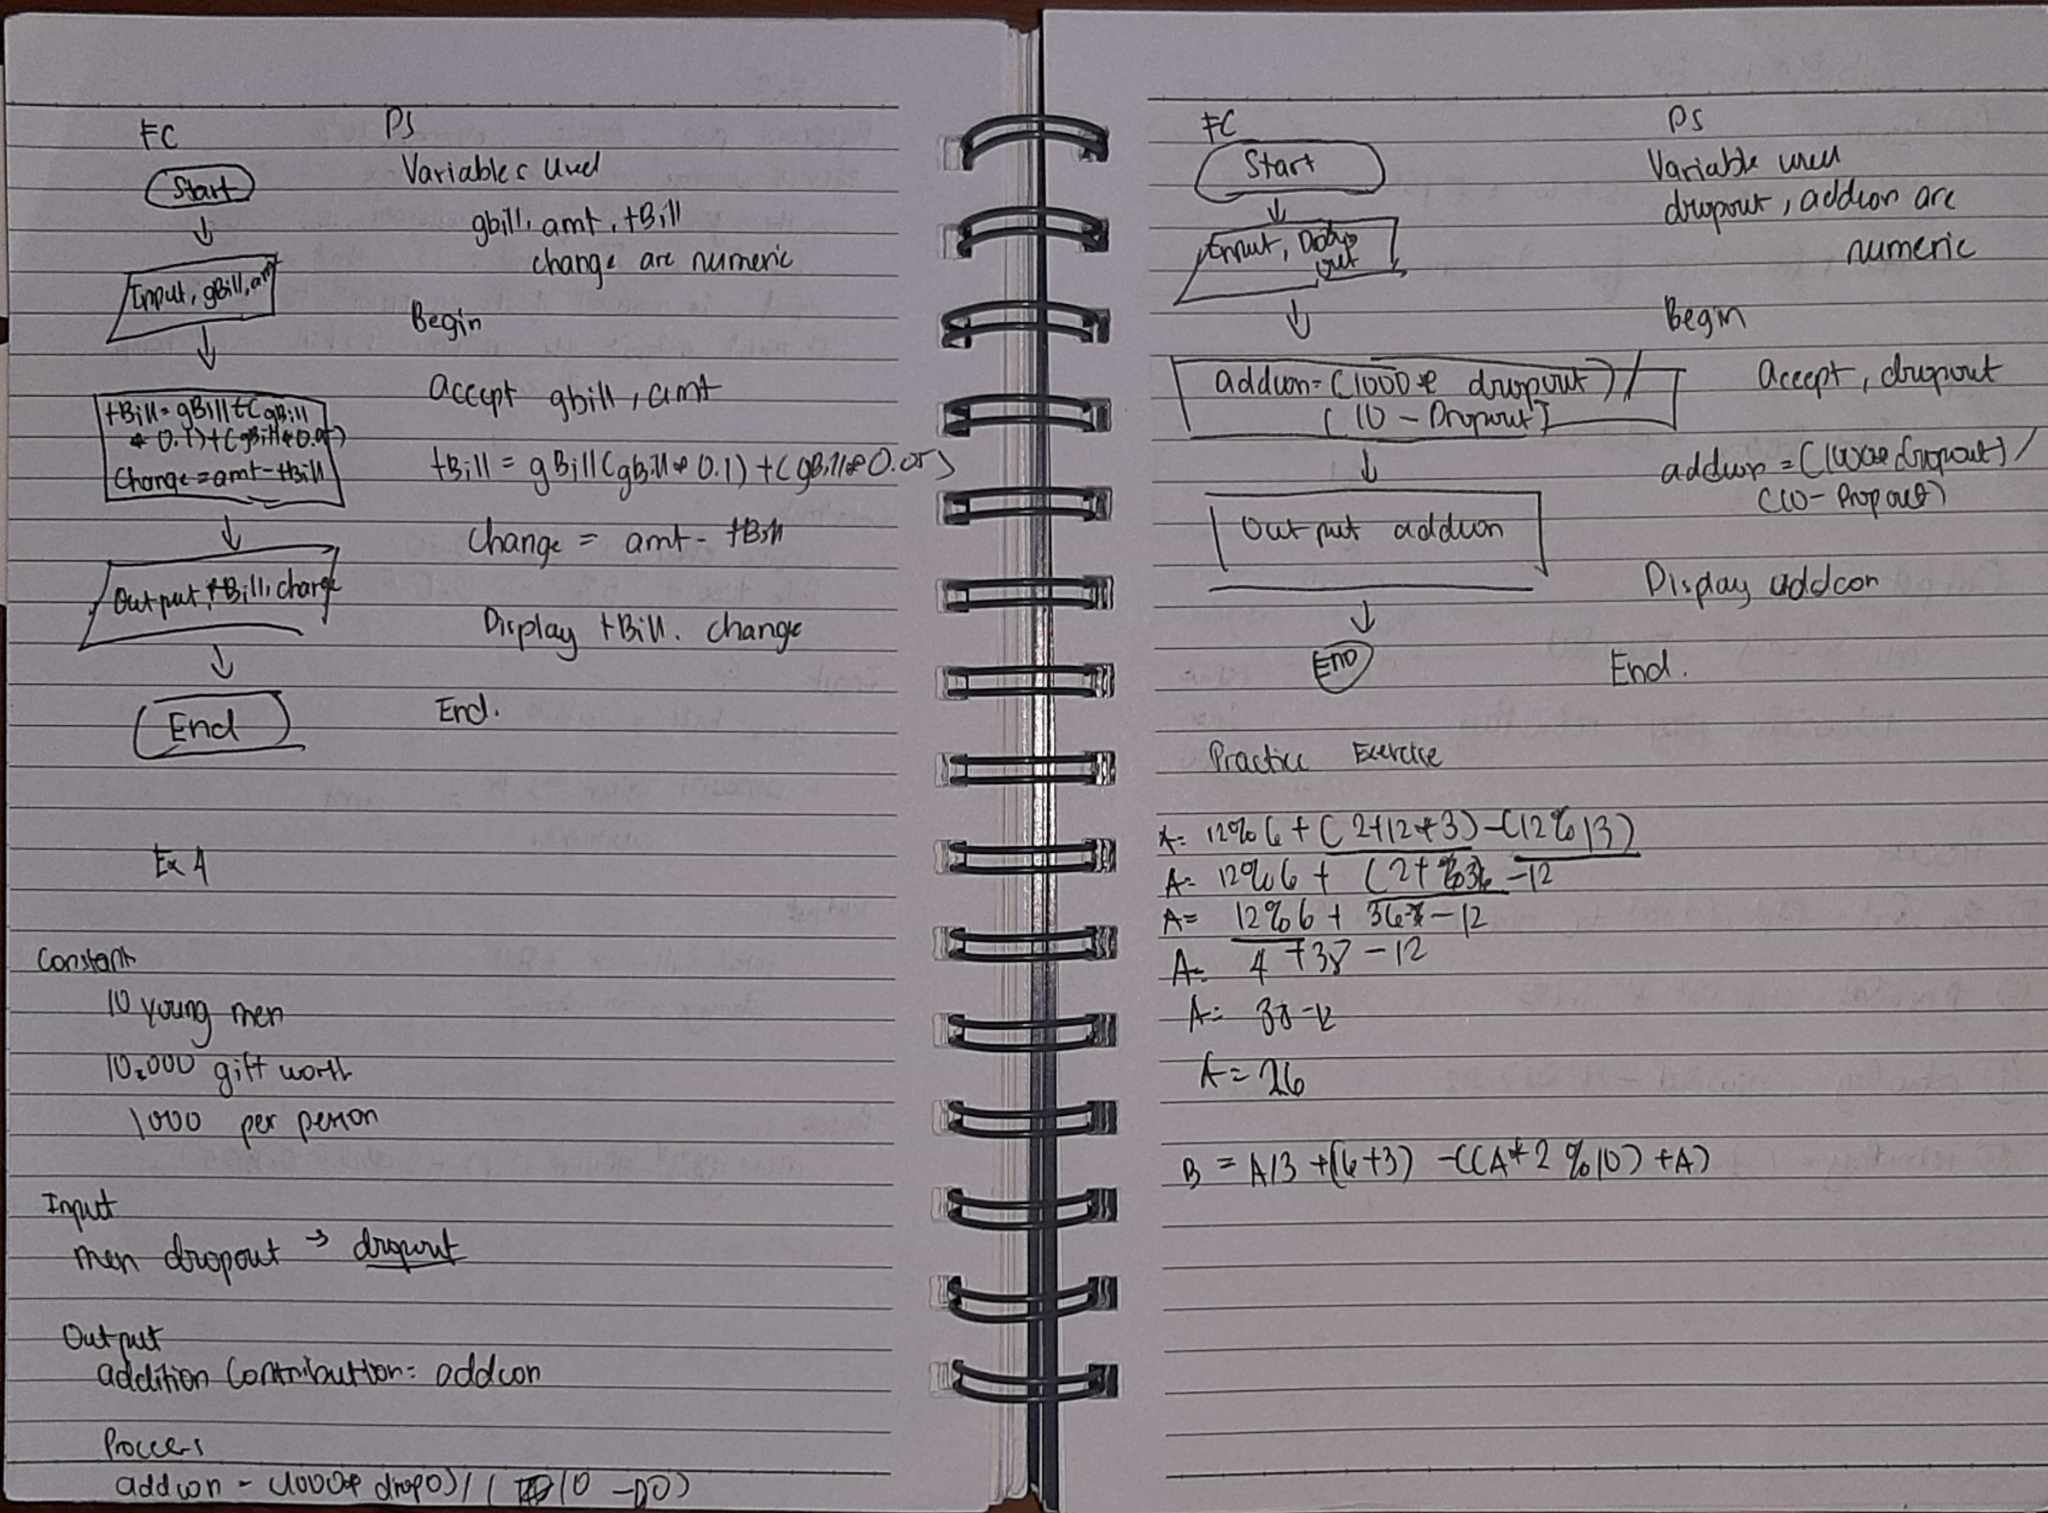 FC
Start
Input, gBill, amt
tBill = gBill + (gBill
* 0.1) + (gBill * 0.05)
Change = amt - tBill
Output, tBill, change
End
PS
Variables Used
gbill, amt, tBill
change are numeric
Begin
accept gbill, amt
tBill = gBill (gBill * 0.1) + (gBill * 0.05)
Change = amt - tBill
Display tBill. change
End.
Ex 4
Constant
10 young men
10,000 gift worth
1000 per person
Input
men dropout → dropout
Output
addition Contribution: addcon
Process
addcon - (1000 * dropO) / (10 - DO)
FC
Start
Input, Drop
out
addcon = (1000 * dropout) /
(10 - Dropout)
Output addcon
END
PS
Variable used
dropout, addcon are
numeric
Begin
Accept, dropout
addcon = (1000 * dropout) /
(10 - Dropout)
Display addcon
End.
Practice Exercise
A = 12 % 6 + (2 + 12 * 3) - (12 % 13)
A = 12 % 6 + (2 + 36 - 12
A = 12 % 6 + 38 - 12
A = + 38 - 12
A = 38 - 12
A = 26
B = A / 3 + (6 + 3) - ((A * 2 % 10) + A)